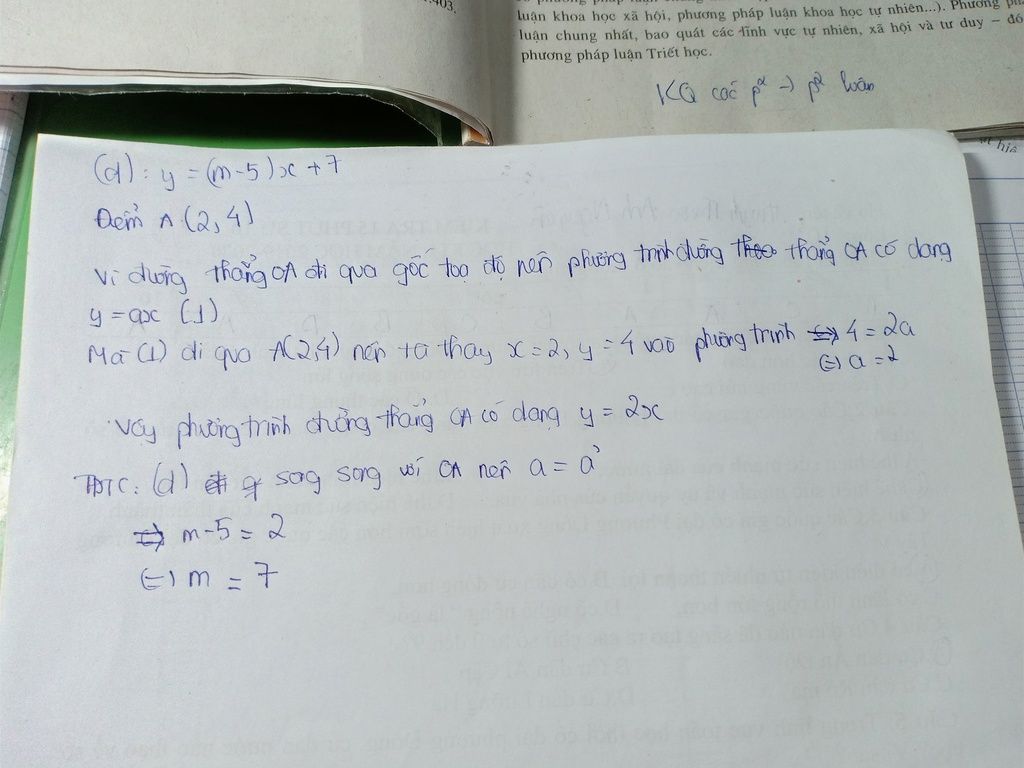 .403.
luận khoa học xã hội, phương pháp luận khoa học tự nhiên...). Phương
luận chung nhất, bao quát các lĩnh vực tự nhiên, xã hội và tư duy – đó
phương pháp luận Triết học.
KQ các p² → p² luận
(d): y = (m-5)x + 7
Điểm A (2,4)
Vì đường thẳng OA đi qua gốc toạ độ nên phương trình đường thẳng OA có dạng
y = ax (1)
Mà (1) đi qua A(2,4) nên ta thay x = 2, y = 4 vào phương trình <=> 4 = 2a
(=) a = 2
Vậy phương trình đường thẳng OA có dạng y = 2x
TĐTC: (d) song song với OA nên a = a'
<=> m-5 = 2
(=) m = 7